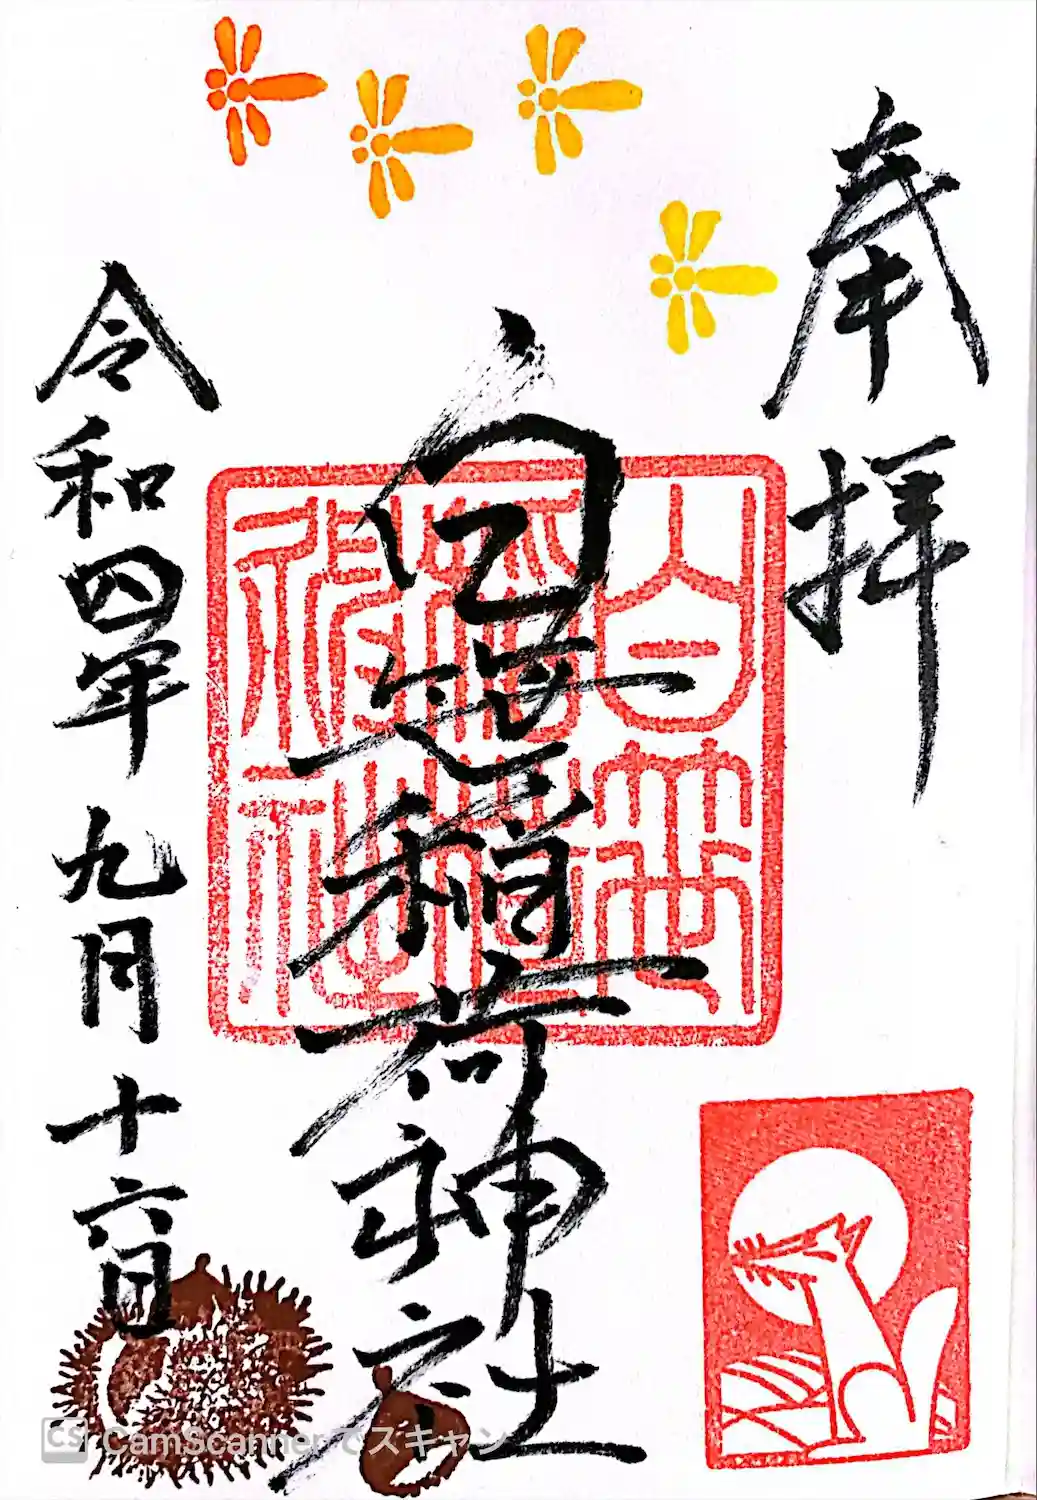 奉拝
白笹稲荷神社
白笹稲荷神社
令和四年九月十六日
CS CamScannerでスキャン